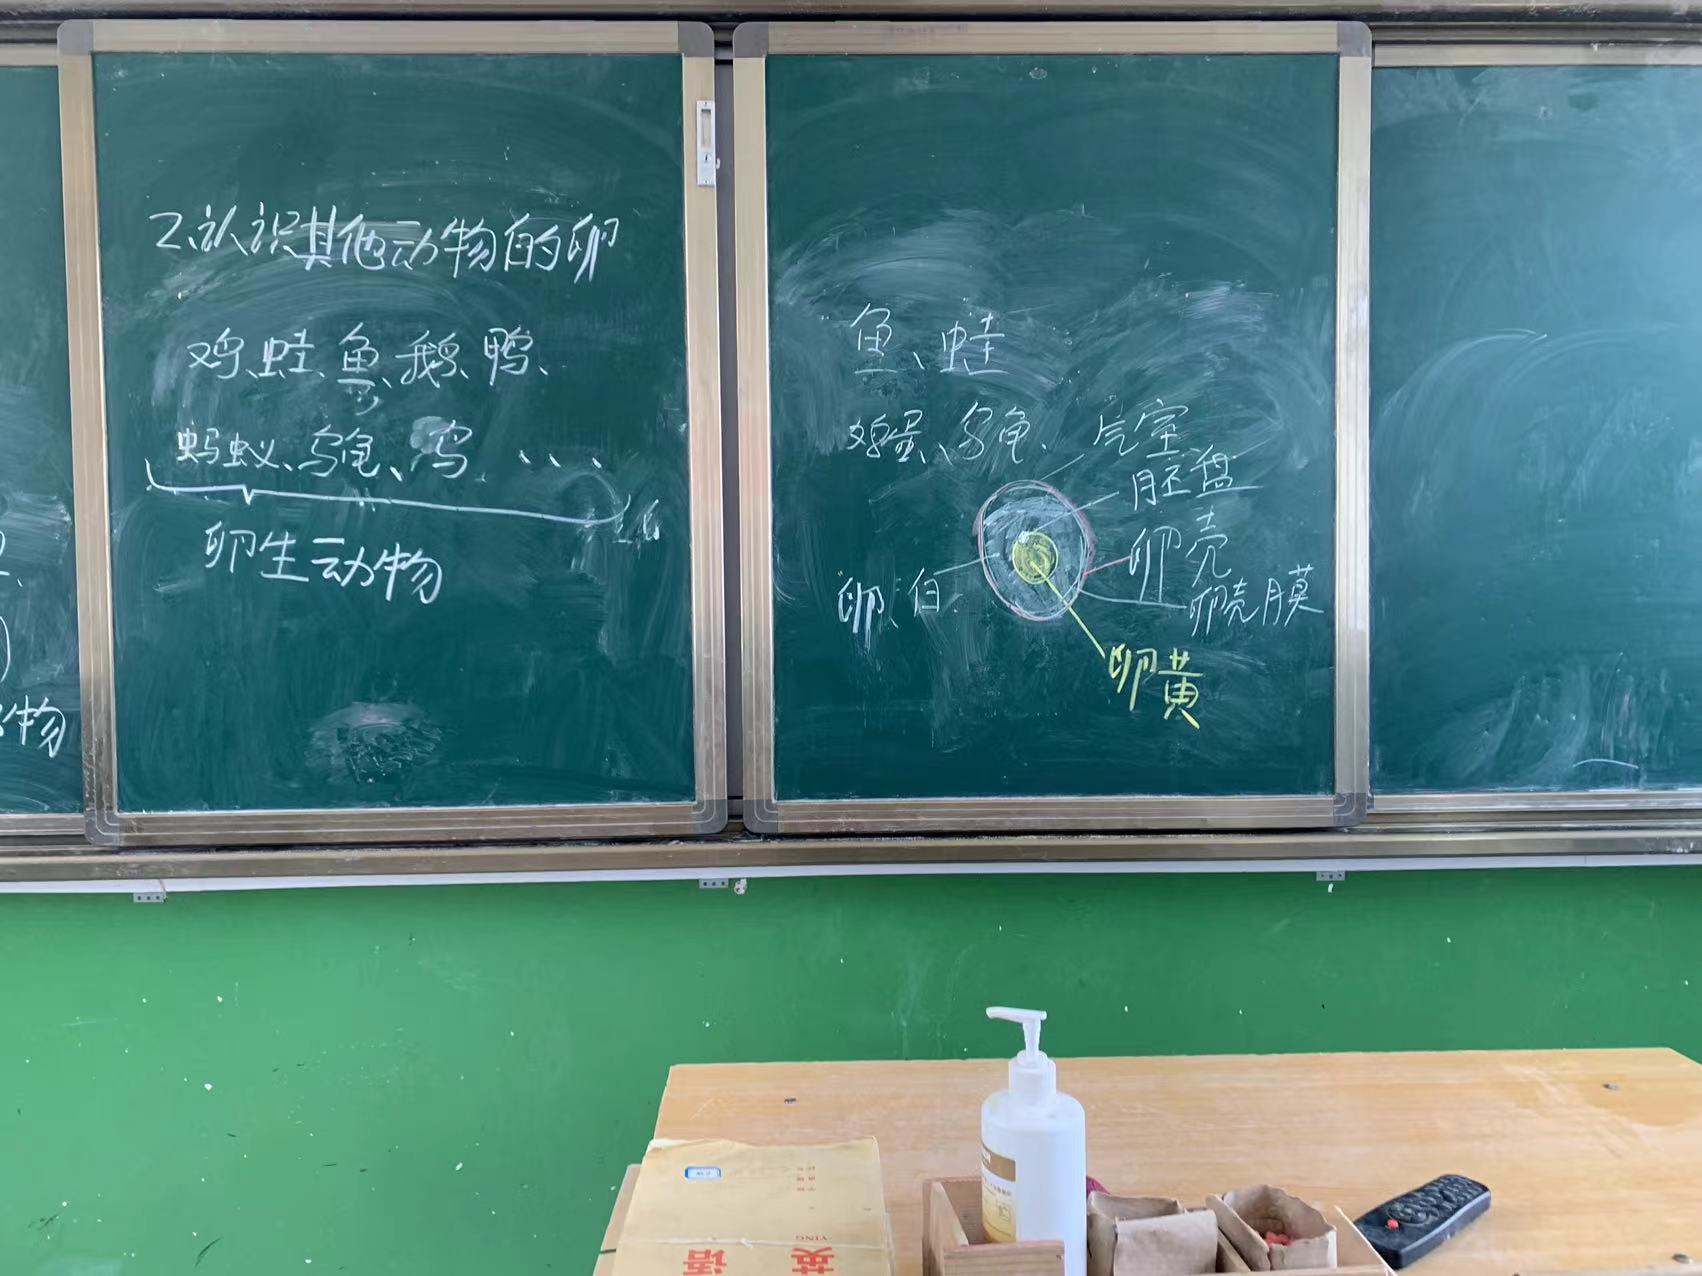 2、认识其他动物的卵
鸡、蛙、鱼、鹅、鸭、
蚂蚁、乌龟、鸟、...
卵生动物
物
鱼、蛙
鸡蛋、乌龟、
气室
胚盘
卵壳
卵壳膜
卵白
卵黄
YING
英语